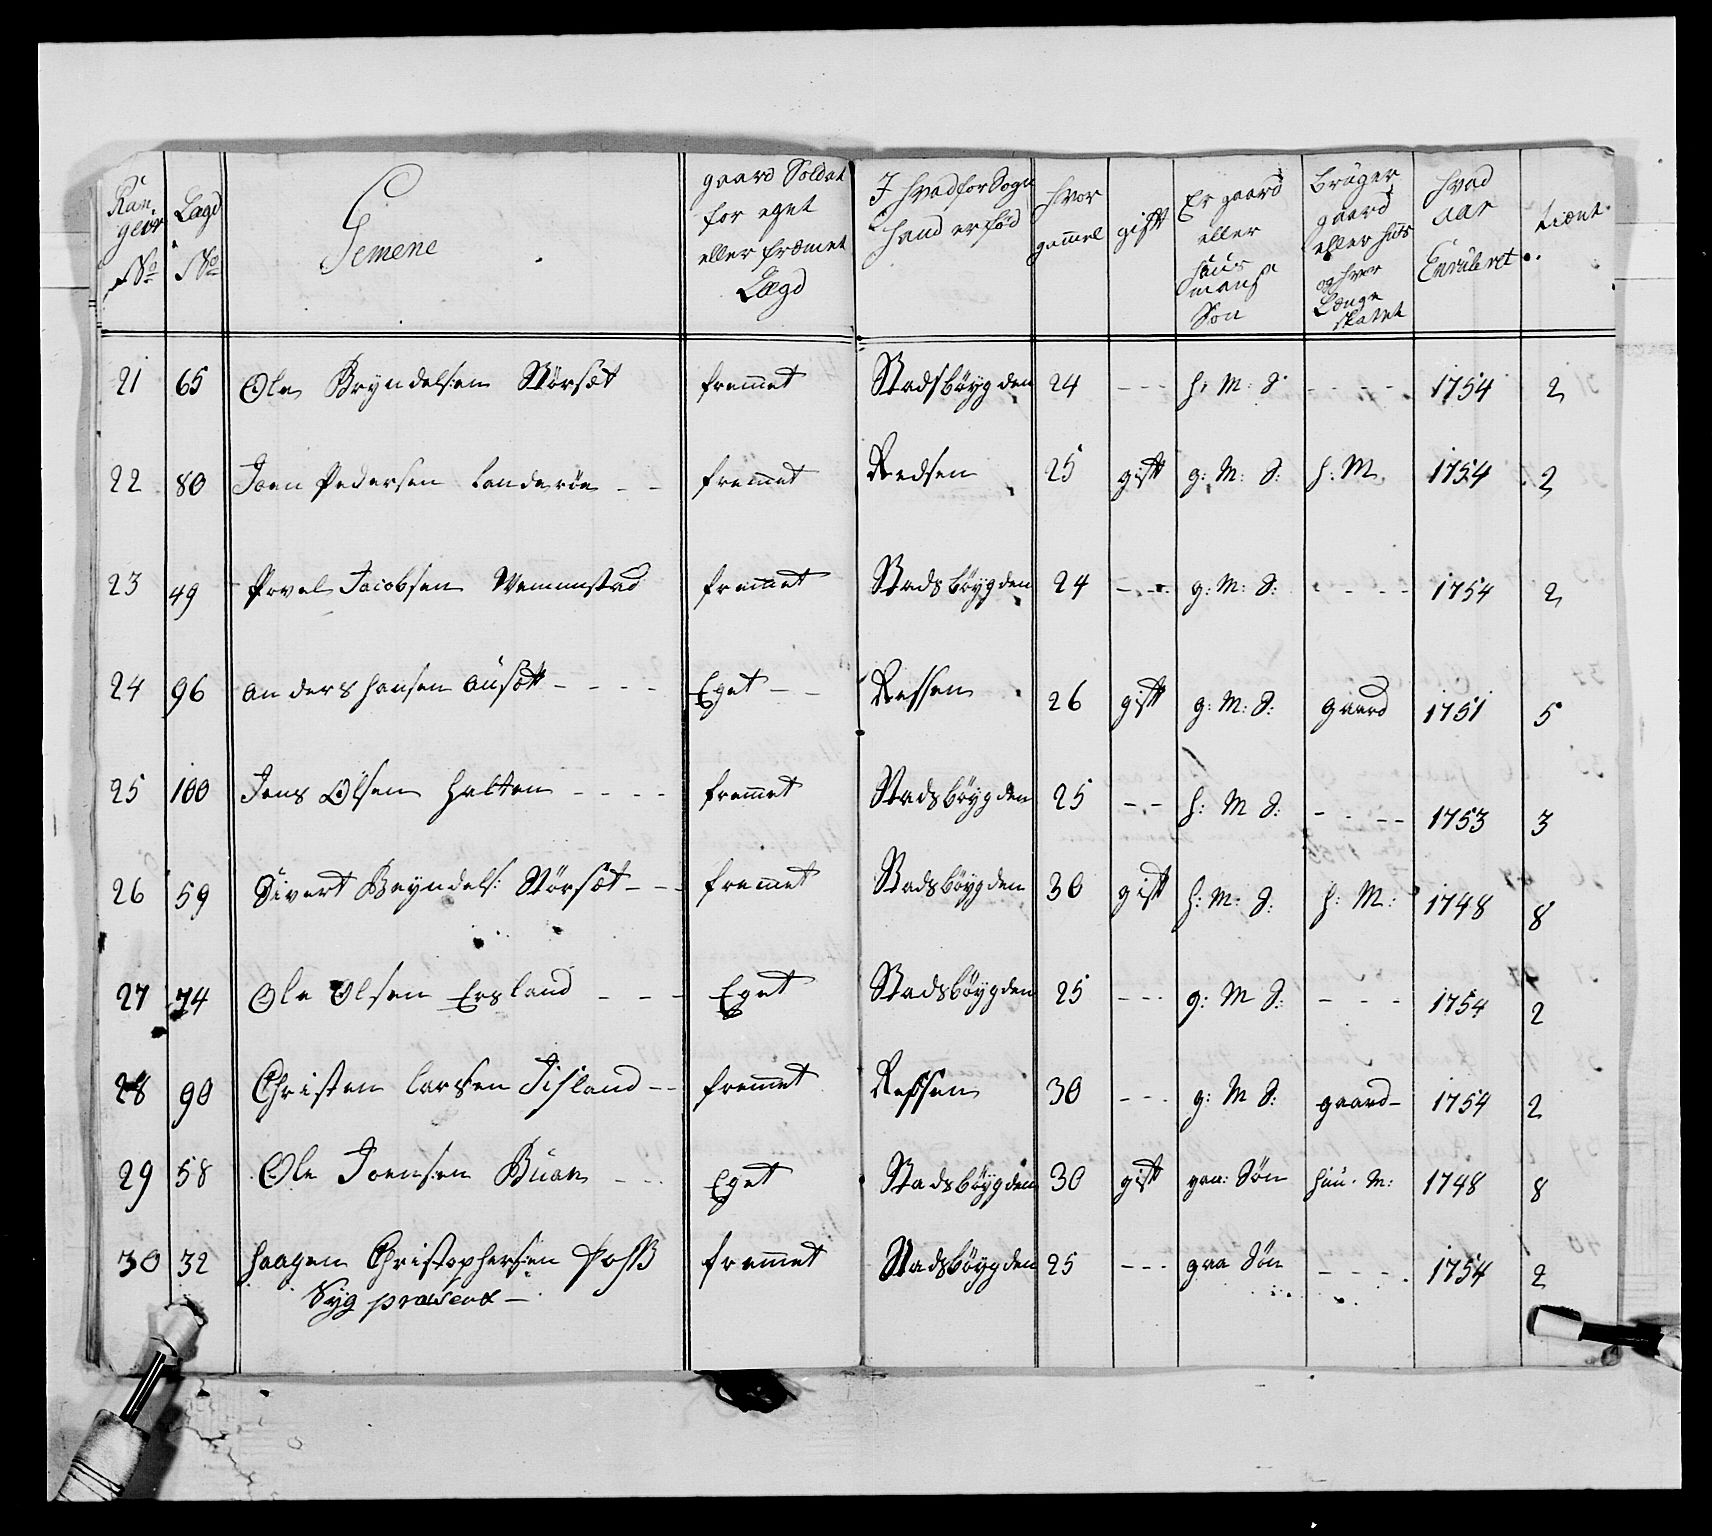 Ran
geur
No
Lægd
No
Gemene
gaard Soldat
for eget
eller fræmet
Lægd
I hvad for Sogn
hand er fød
hvor
gammel
gift
Er gaard
eller
huus
mans
Søn
bruger
gaard
eller huus
og hvor
Længe
skatet
hvad
aar
Enruleret
tient
21 65 Ole Bryndelsen Størsæt fremmet Stadsbøygden 24 - - - h: M: S: - - - - 1754 2
22 80 Joen Pedersen Landerøe - - fremmet Redsen 25 gift g: M: S: h: M. 1754 2
23 49 Povel Jacobsen Wemmestad fremmet Stadsbøygden 24 - - - g: M: S: - - - - 1754 2
24 96 anders hansen ausætt - - - - Eget - - Ressen 26 gift g: M: S: gaard 1751 5
25 100 Jens Olsen halten - - - - fremmet Stadsbøygden 25 - - h: M S: - - - - 1753 3
26 59 Sivert Bryndels: Størsæt - - - fremmet Stadsbøygden 30 gift h: M: S: h: M: 1748 8
27 74 Ole Olsen Ersland - - - Eget Stadsbøygden 25 - - - g: M S: - - - 1754 2
28 90 Christen larssen Fisland - - fremmet Ressen 30 - - - g: M S: gaard - 1754 2
29 58 Ole Joensen Buan - - - Eget Stadsbøygden 30 gift gaa: Søn huu. M: 1748 8
30 32 haagen Christophersen fremmet Stadsbøygden 25 - - - gaa Søn - - - - 1754 2
Syg præsent -